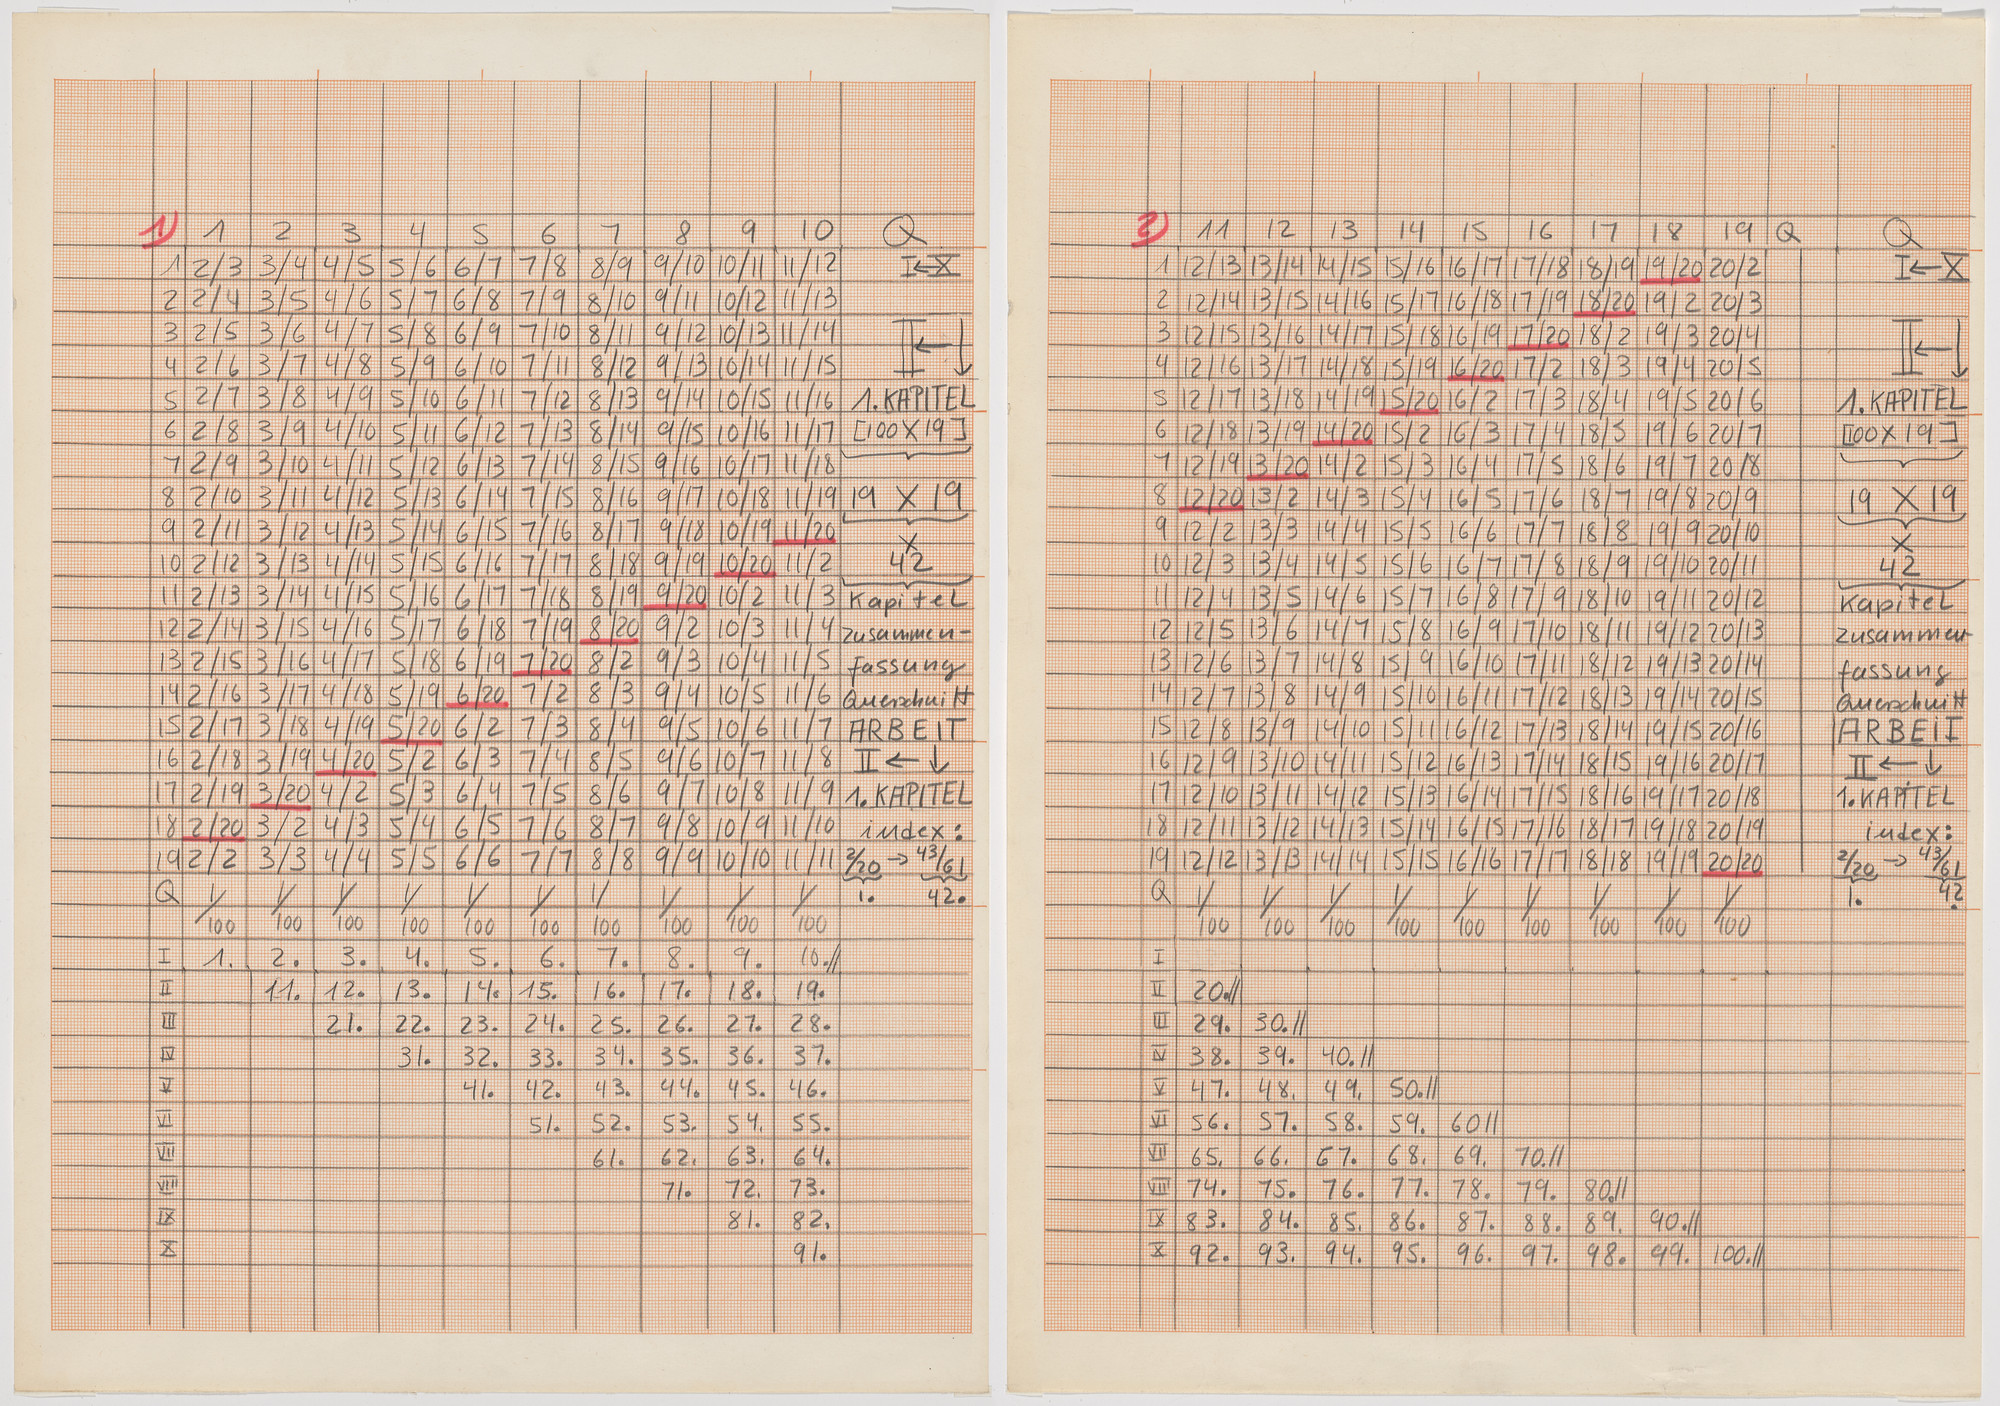 1) 1 2 3 4 5 6 7 8 9 10 Q
1 2/3 3/4 4/5 5/6 6/7 7/8 8/9 9/10 10/11 11/12 I←X
2 2/4 3/5 4/6 5/7 6/8 7/9 8/10 9/11 10/12 11/13
3 2/5 3/6 4/7 5/8 6/9 7/10 8/11 9/12 10/13 11/14 II←↓
4 2/6 3/7 4/8 5/9 6/10 7/11 8/12 9/13 10/14 11/15
5 2/7 3/8 4/9 5/10 6/11 7/12 8/13 9/14 10/15 11/16 1. KAPITEL
6 2/8 3/9 4/10 5/11 6/12 7/13 8/14 9/15 10/16 11/17 [100X19]
7 2/9 3/10 4/11 5/12 6/13 7/14 8/15 9/16 10/17 11/18
8 2/10 3/11 4/12 5/13 6/14 7/15 8/16 9/17 10/18 11/19 19 X 19
9 2/11 3/12 4/13 5/14 6/15 7/16 8/17 9/18 10/19 11/20 X
10 2/12 3/13 4/14 5/15 6/16 7/17 8/18 9/19 10/20 11/2 42
11 2/13 3/14 4/15 5/16 6/17 7/18 8/19 9/20 10/2 11/3 Kapitel
12 2/14 3/15 4/16 5/17 6/18 7/19 8/20 9/2 10/3 11/4 zusammen-
13 2/15 3/16 4/17 5/18 6/19 7/20 8/2 9/3 10/4 11/5 fassung
14 2/16 3/17 4/18 5/19 6/20 7/2 8/3 9/4 10/5 11/6 Querschnitt
15 2/17 3/18 4/19 5/20 6/2 7/3 8/4 9/5 10/6 11/7 ARBEIT
16 2/18 3/19 4/20 5/2 6/3 7/4 8/5 9/6 10/7 11/8 II←↓
17 2/19 3/20 4/2 5/3 6/4 7/5 8/6 9/7 10/8 11/9 1. KAPITEL
18 2/20 3/2 4/3 5/4 6/5 7/6 8/7 9/8 10/9 11/10 index:
19 2/2 3/3 4/4 5/5 6/6 7/7 8/8 9/9 10/10 11/11 2/20 → 43/61
Q 1/100 1/100 1/100 1/100 1/100 1/100 1/100 1/100 1/100 1/100 1. 42.
I 1. 2. 3. 4. 5. 6. 7. 8. 9. 10.//
II 11. 12. 13. 14. 15. 16. 17. 18. 19.
III 21. 22. 23. 24. 25. 26. 27. 28.
IV 31. 32. 33. 34. 35. 36. 37.
V 41. 42. 43. 44. 45. 46.
VI 51. 52. 53. 54. 55.
VII 61. 62. 63. 64.
VIII 71. 72. 73.
IX 81. 82.
X 91.
2) 11 12 13 14 15 16 17 18 19 Q Q
1 12/13 13/14 14/15 15/16 16/17 17/18 18/19 19/20 20/2 I←X
2 12/14 13/15 14/16 15/17 16/18 17/19 18/20 19/2 20/3
3 12/15 13/16 14/17 15/18 16/19 17/20 18/2 19/3 20/4 II←↓
4 12/16 13/17 14/18 15/19 16/20 17/2 18/3 19/4 20/5
5 12/17 13/18 14/19 15/20 16/2 17/3 18/4 19/5 20/6 1. KAPITEL
6 12/18 13/19 14/20 15/2 16/3 17/4 18/5 19/6 20/7 [100X19]
7 12/19 13/20 14/2 15/3 16/4 17/5 18/6 19/7 20/8
8 12/20 13/2 14/3 15/4 16/5 17/6 18/7 19/8 20/9 19 X 19
9 12/2 13/3 14/4 15/5 16/6 17/7 18/8 19/9 20/10 X
10 12/3 13/4 14/5 15/6 16/7 17/8 18/9 19/10 20/11 42
11 12/4 13/5 14/6 15/7 16/8 17/9 18/10 19/11 20/12 Kapitel
12 12/5 13/6 14/7 15/8 16/9 17/10 18/11 19/12 20/13 zusammen
13 12/6 13/7 14/8 15/9 16/10 17/11 18/12 19/13 20/14 fassung
14 12/7 13/8 14/9 15/10 16/11 17/12 18/13 19/14 20/15 Querschnitt
15 12/8 13/9 14/10 15/11 16/12 17/13 18/14 19/15 20/16 ARBEIT
16 12/9 13/10 14/11 15/12 16/13 17/14 18/15 19/16 20/17 II←↓
17 12/10 13/11 14/12 15/13 16/14 17/15 18/16 19/17 20/18 1. KAPITEL
18 12/11 13/12 14/13 15/14 16/15 17/16 18/17 19/18 20/19 index:
19 12/12 13/13 14/14 15/15 16/16 17/17 18/18 19/19 20/20 2/20 → 43/61
Q 1/100 1/100 1/100 1/100 1/100 1/100 1/100 1/100 1/100 1. 42.
I
II 20.//
III 29. 30.//
IV 38. 39. 40.//
V 47. 48. 49. 50.//
VI 56. 57. 58. 59. 60//
VII 65. 66. 67. 68. 69. 70.//
VIII 74. 75. 76. 77. 78. 79. 80.//
IX 83. 84. 85. 86. 87. 88. 89. 90.//
X 92. 93. 94. 95. 96. 97. 98. 99. 100.//